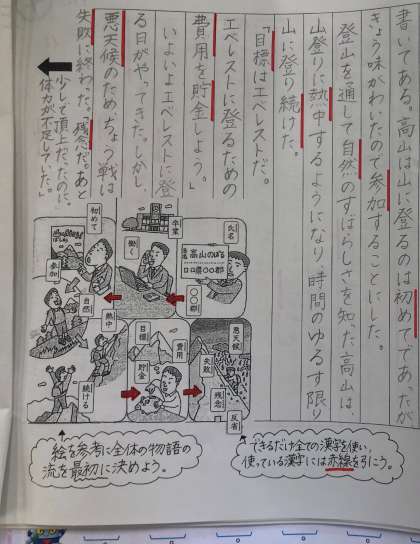 書いてある。高山は山に登るのは初めてであったが
きょう味がわいたので参加することにした。
登山を通して自然のすばらしさを知った高山は、
山登りに熱中するようになり、時間のゆるす限り
山に登り続けた。
「目標はエベレストだ。
エベレストに登るための
費用を貯金しよう。」
いよいよエベレストに登
る日がやってきた。しかし、
悪天候のため、ちょう戦は
失敗に終わった。「残念だ。あと
少しで頂上だったのに、
体力が不足していた。」
氏名
高山のぼる
〇〇郡
卒業
働く
初めて
参加
自然
熱中
続ける
目標
費用
貯金
悪天候
失敗
残念
反省
できるだけ全ての漢字を使い、
使っている漢字には赤線を引こう。
絵を参考に全体の物語の
流を最初に決めよう。